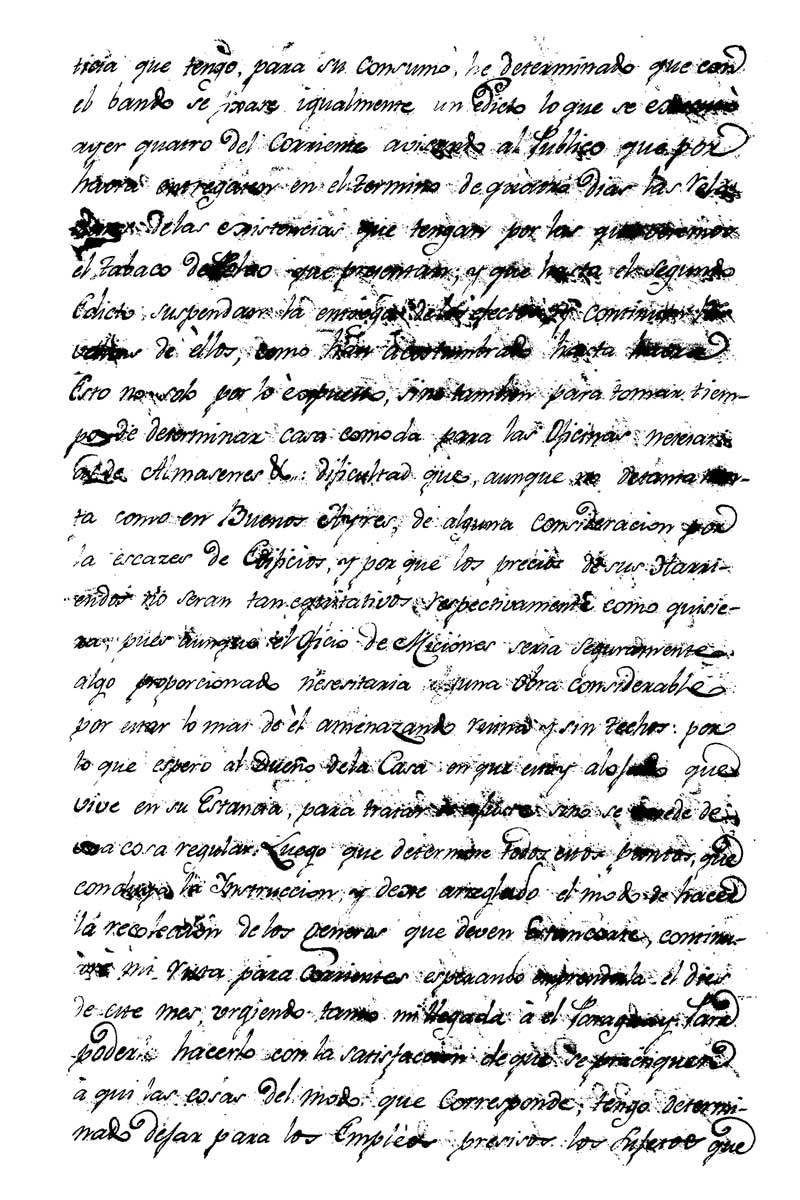 ticia que tengo, para su Consumo, he determinado que con
el bando se fixase igualmente un Edicto lo que se
ayer quatro del Corriente avisando al Publico que por
haora entregasen en el termino de quatro Dias las
de las existencias que tengan por las que
el tabaco de que presentan, y que hasta el segundo
Edicto, suspendan la entrega de los efectos y continuen las
ventas de èllos, como han acostumbrado hasta haora
Esto no solo por lo èxpuesto, sino tambien para tomar tiem-
po de determinar casa comoda para las Oficinas
de Almasenes &.: dificultad que, aunque no de tanta
ta como en Buenos Ayres, de alguna consideracion por
la escazes de Edificios, y por que los precios de sus Harri-
endos no seran tan equitativos respectivamente como quisie-
ra; pues aunque el Oficio de Miciones seria seguramente
algo proporcionado nesesitaria de una obra considerable
por estar lo mas de èl amenazando ruina y sin techos: por
lo que espero al Dueño de la Casa en que estoy alojado que
vive en su Estancia, para tratar de ajuste sino se excede de
una cosa regular. Luego que determine todos estos puntos, que
concluya la Instruccion, y dexe arreglado el modo de hacer
la recoleccion de los generos que deven Estancarse, continu-
arè mi Visita para Corrientes esperando emprenderla el dies
de este mes, urgiendo tanto mi llegada à el Paraguay. Para
poder hacerlo con la satisfaccion de que se practiquen
à qui las cosas del modo que Corresponde, tengo determi-
nado dejar para los Empleos precisos los Sujetos que